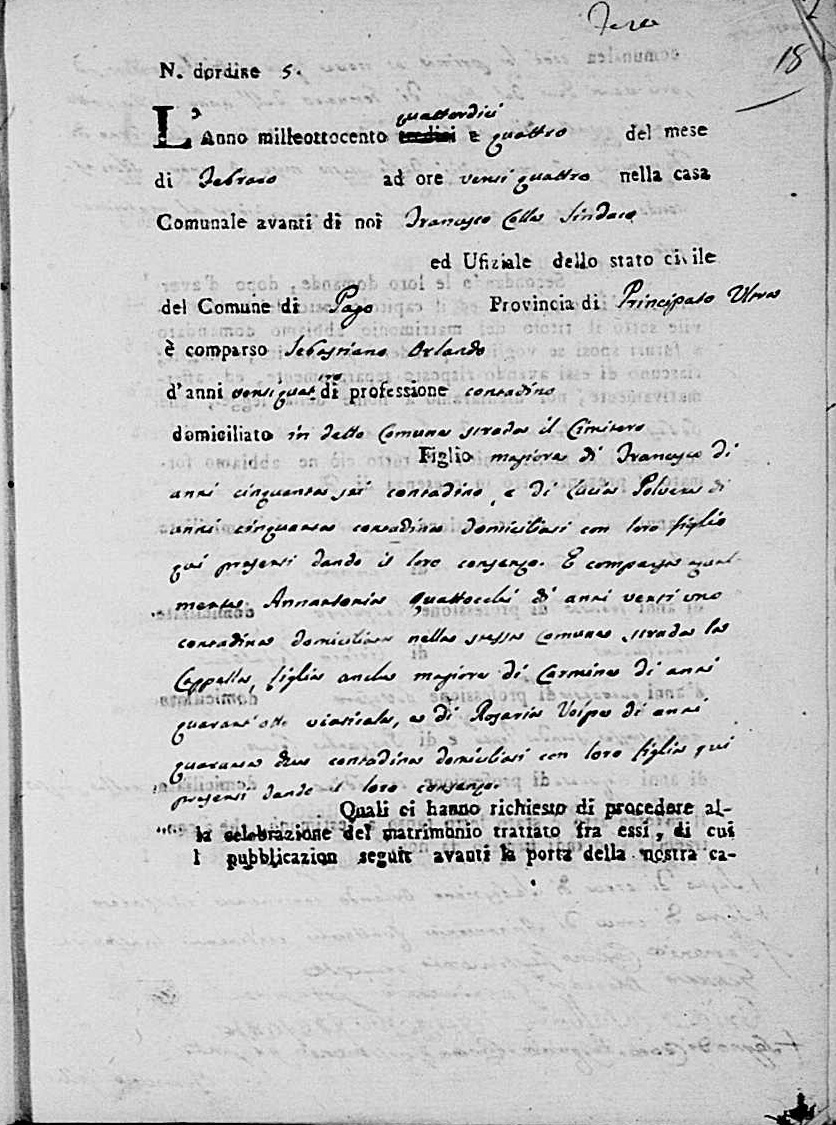 18
N. dordine 5.
quattordici
L'Anno milleottocento tredici e quattro del mese
di Febraro ad ore venti quattro nella casa
Comunale avanti di noi Francesco Colla Sindaco
ed Ufiziale dello stato civile
del Comune di Pago Provincia di Principato Ultra
è comparso Sebastiano Orlando
d'anni ventiquattro di professione contadino
domiciliato in detto Comune strada il Cimitero
Figlio magiore di Francesco di
anni cinquanta sei contadino, e di Lucia Polvere di
anni cinquanta contadina domiciliati con loro figlio
qui presenti dando il loro consenzo. E comparsa egual
mente Annantonia Quattocchi di anni venti uno
contadina domiciliata nella stessa Comune strada la
Cappella, figlia anche magiore di Carmine di anni
quarant'otto viaticale, e di Rosaria Volpe di anni
quaranta due contadina domiciliati con loro figlia qui
presenti dando il loro consenzo.
Quali ci hanno richiesto di procedere al-
la celebrazione del matrimonio trattato fra essi, di cui
l pubblicazion seguit avanti la porta della nostra ca-